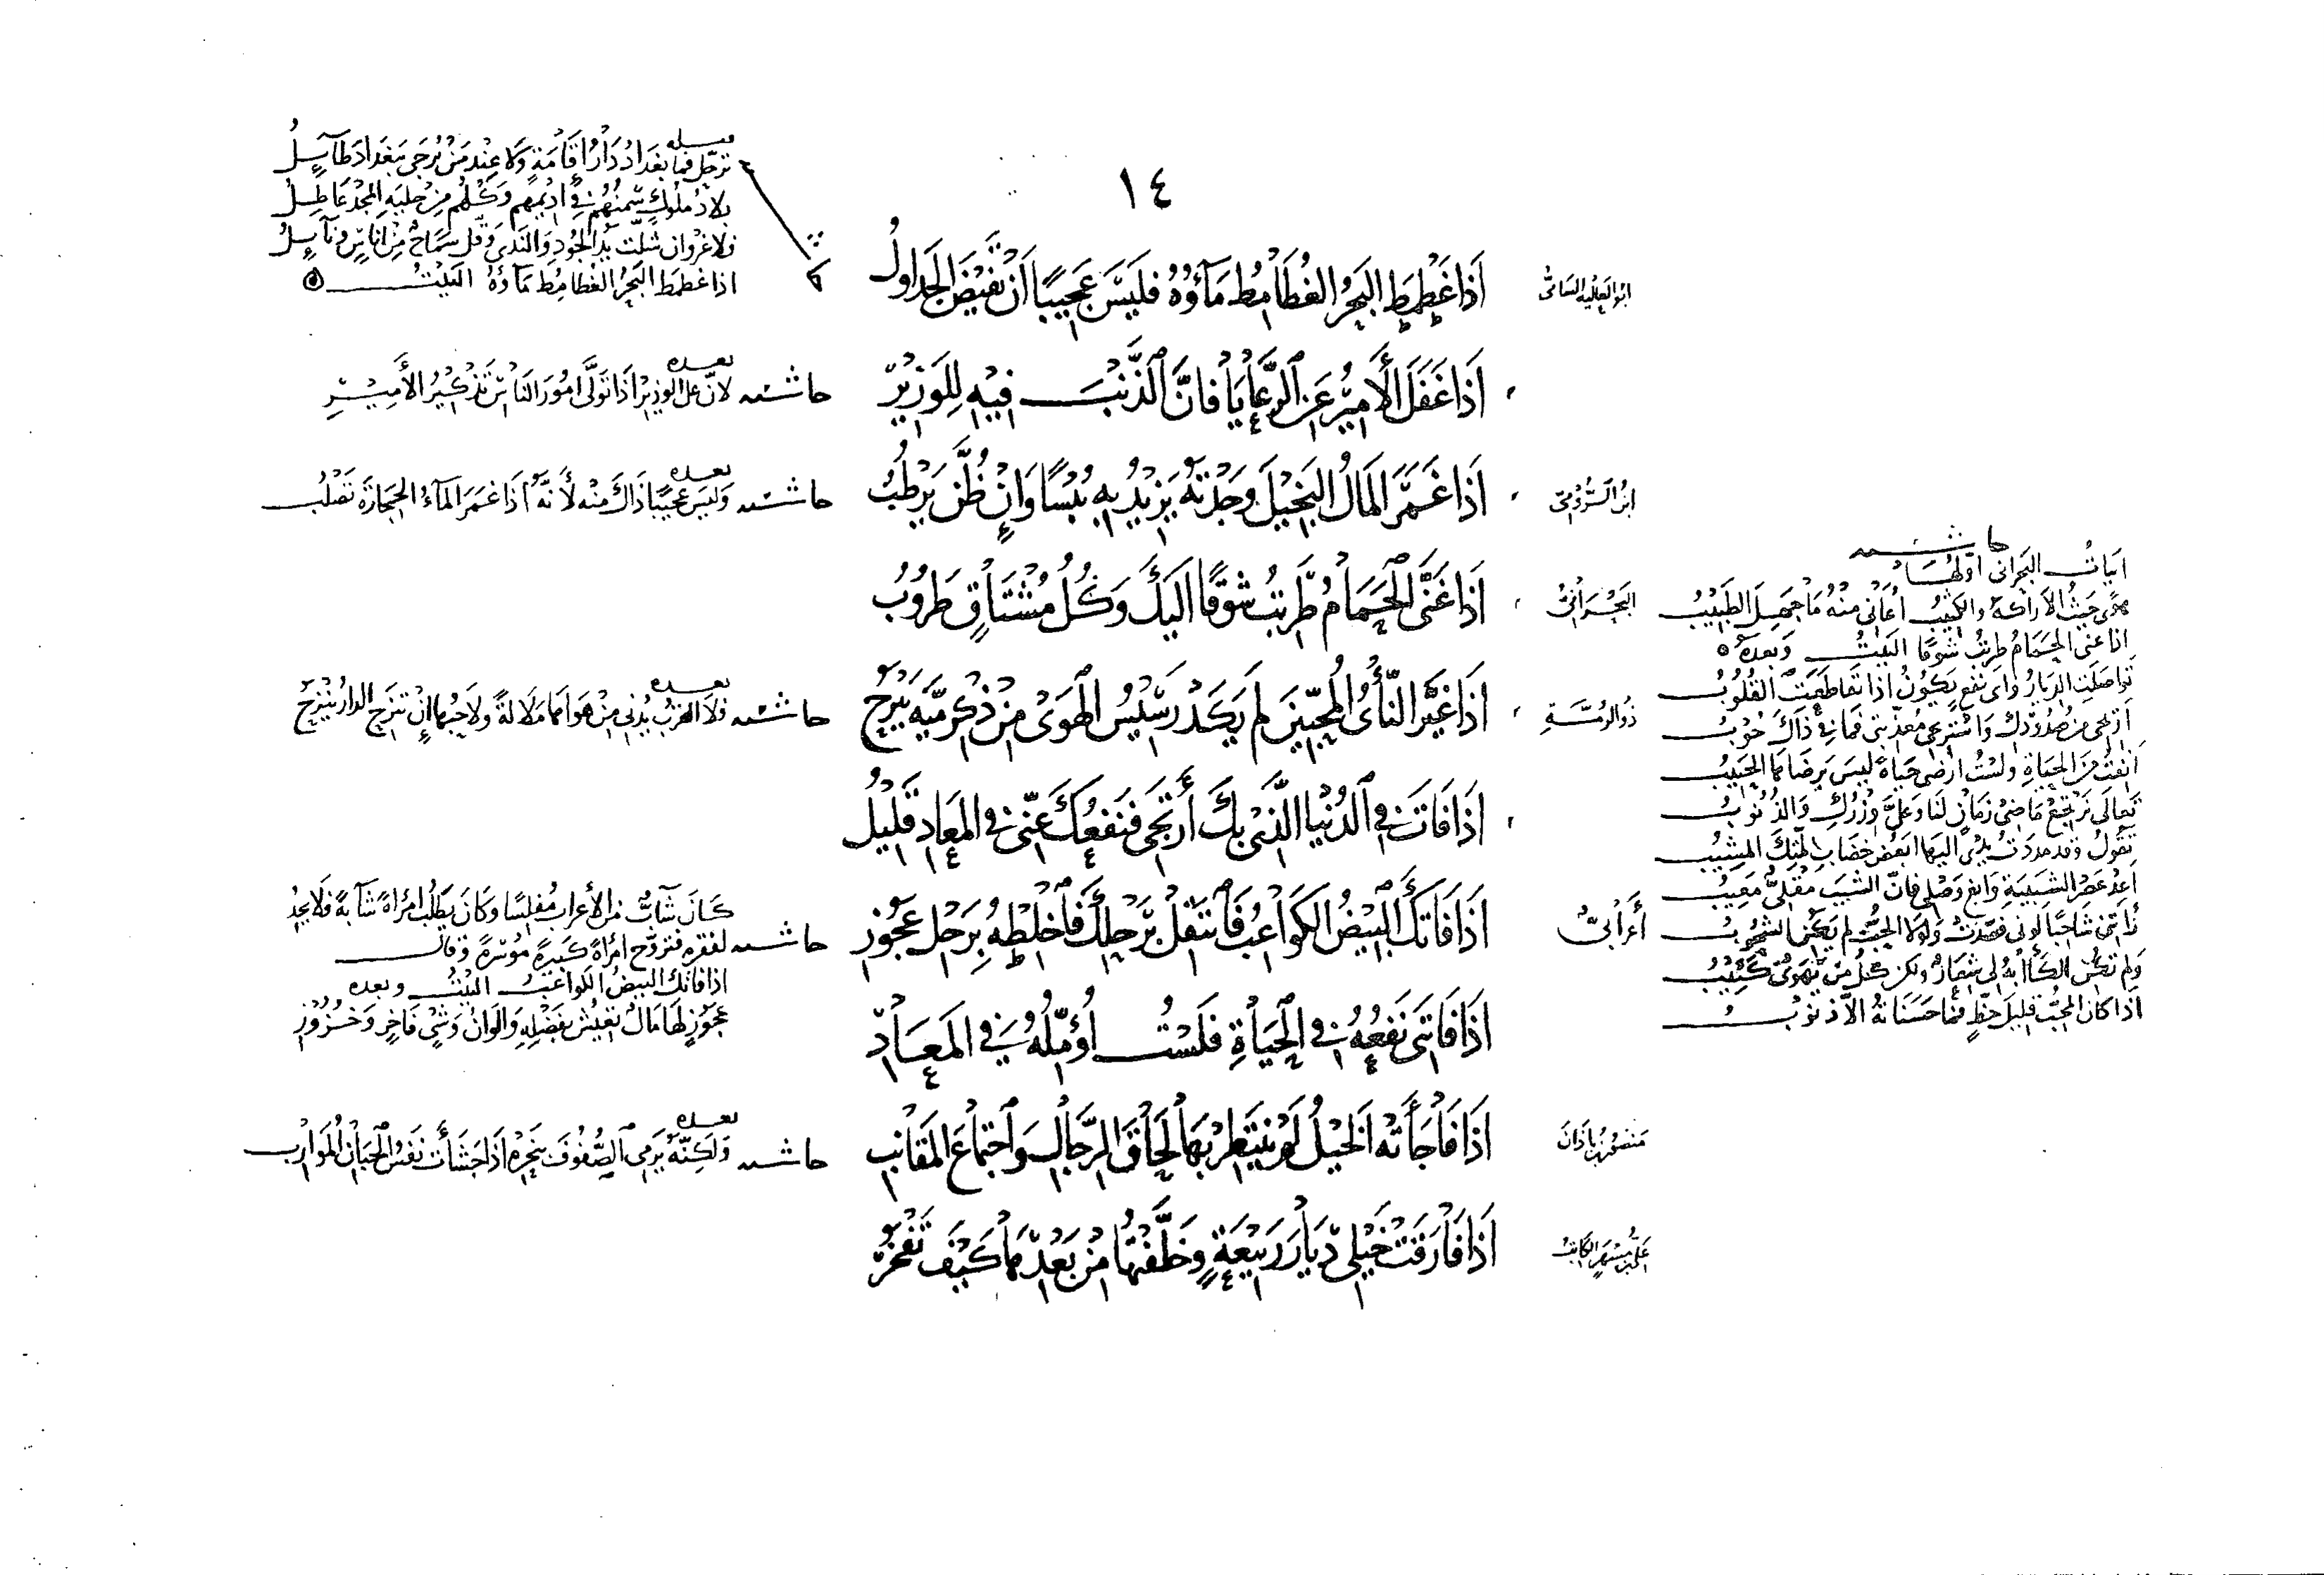 ١٤
ابو العالية السامي
اذَا غَطْمَطَ البَحرُ الغُطَامِطُ مَآؤُهُ فَلَيسَ عَجِيبًا اَنْ تَفِيضَ الجَدَاولُ
قبله
ترحّل فما بغدادُ دَارُ اِقَامَةٍ وَلا عِنْدَ مَنْ يُرجَى بِبَغدَاد طَآيِلُ
بلادُ مُلُوكٍ سمنُهُم فِي اَدِيمِهِم وَكُلُّهُم مِنْ حِليَةِ المَجدِ عَاطِلُ
فلا غَروَ ان شَلّت يَدُ الجُودِ وَالنَدَى وَقلَّ سَمَاحٌ مِنْ اُنَاسٍ وَنَآيِلُ
اذا غطمط البَحرُ الغُطَامِط مَآؤهُ البَيتُ
اذَا غَفَلَ الأَمِيرُ عَنِ الرَّعَايَا فَانَّ الذَّنْبَ فِيهِ لِلوَزِيرِ
حاشيه
بعده
لانَّ عَلى الوزِيرِ اذَا تَوَلَّى امُورَ النَاسِ تَذكِيرُ الأَمِيرِ
ابنُ الرُّومِي
اذَا غَمَرَ المَالُ البَخِيلَ وَجَدْتَهُ يَزِيدُ بِهِ يُبْسًا وَاِنْ ظُنَّ يَرطُبُ
حاشيه
بعده
وَلَيسَ عَجِيبًا ذَاكَ مِنْه لأَنَّهُ اذَا غَمَرَ المآءُ الحِجَارَةَ تَصْلُبُ
البَحْرَانيُّ
اذَا غَنَّى الحَمَامُ طَرِبتُ شَوقًا اليَكَ وَكُلُّ مُشْتَاقٍ طَرُوبُ
حاشيه
ابَياتُ البَحْرَانى اوّلهَا
اُعَانى مِنْهُ مَا جَهِلَ الطَبِيْبُ
اذا غنى الحَمَامُ طربتُ شوقًا البَيتُ وَبعده
تَواصَلَتِ الدِيَارُ وَاى نفعٍ يَكُونُ اذا تَقَاطَعَتِ القُلُوبُ
اَنِفْتُ مِنَ الحَيَاةِ وَلَسْتُ ارضَى حَيَاةً لَيسَ يَرضَاهَا الحَبِيبُ
تَعَالَى نَرْتَجِعْ مَا ضِىَ زَمَانٍ لَنَا وَعَلَىَّ وِزْرُكِ وَالذُنُوبُ
تَقُولُ وَقَد مَدَدتُ يَدِى اليَها ابَعْضُ خِضَابِ لِمَّتِكَ المَشِيبُ
اَعِدْ عَصْرَ الشَبِيبَةِ وَابغِ وَصْلِى فَانَّ الشيَبَ مُقْلِىٌّ مَعِيبُ
لوني فصَدّت وَلَولا الحُبُّ لَم يَكُنِ الشُحُوبُ
وَلم تكن الكَآبةُ لى شِعَارًا ولكن كلُّ مَن يَهوَى كَئِيبُ
اذا كانَ المحُبّ قليلَ حَظٍّ فَمَا حَسَنَاتهُ الاَّ ذنوُبُ
ذُو الرُمَّةِ
اذَا غَيَّرَ النَّأْىُ المُحِبّينَ لَم يَكَدْ رَسِيسُ الهَوَىْ مِنْ ذِكْرِ مَيَّةَ يَبْرَحُ
حاشيه
بعده
فلا القُربُ يُدْنِي مِنْ هَوَاهَا مَلَالَةً وَلا حُبُّهَا اِنْ تنزَحِ الدارُ يَنْزَحُ
اذَا فَاتَ فِي الدُنْيَا الَّذِي بِكَ أَرتَجِي فَنَفعُكَ عَنِّي فِي المَعَادِ قَلِيلُ
أَعرَابيٌّ
اذَا فَاتَكَ البِيْضُ الكَوَاعِبُ فَانتَقِلْ بِرَحلِكَ فَاخلِطْهُ بِرَحلِ عَجُوزِ
حاشيه
كَانَ شَآبٌّ مِنَ الأعرابِ مُفلِسًا وَكانَ يَطلُب امرَاةً شَابَّةً فَلا يَجدُ
لفقرهِ فتزوّج امرَاةً كَبيرةً مُوسرةً وَقالَ
اذا فاتكَ البيضُ الكواعبُ البَيتُ وبعده
عَجُوزٍ لَها مَالٌ تعيشُ بفَضْلِهِ وَالوَانِ وَشْيٍ فَاخِرٍ وَخُزُوزِ
اذَا فَاتَنِي نَفعُهُ فِي الحَيَاةِ فَلَسْتُ أُؤَمِّلُهُ فِي المَعَادِ
مَنصُورُ بنُ بَاذَانَ
اذَا فَاجَأَتهُ الخَيلُ لَم يَنتَظِر بِهَا لحَاقَ الرِّجَالِ وَاجتِمَاعَ المَقَانِبِ
حاشيه
بعده
وَلَكِنَّهُ يَرمِى الصُّفُوفَ بِنَحرِهِ اذَا جَشَأَت نَفسُ الجَبَانِ المُوَارِبِ
عَلي بن مُسْهِر الكَاتِبُ
اذَا فَارَقَت خَيلِي دِيَارَ رَبِيعَةٍ وَخَلَّفْتُهَا مِنْ بَعْدِهَا كَيفَ تَفْخَرُ